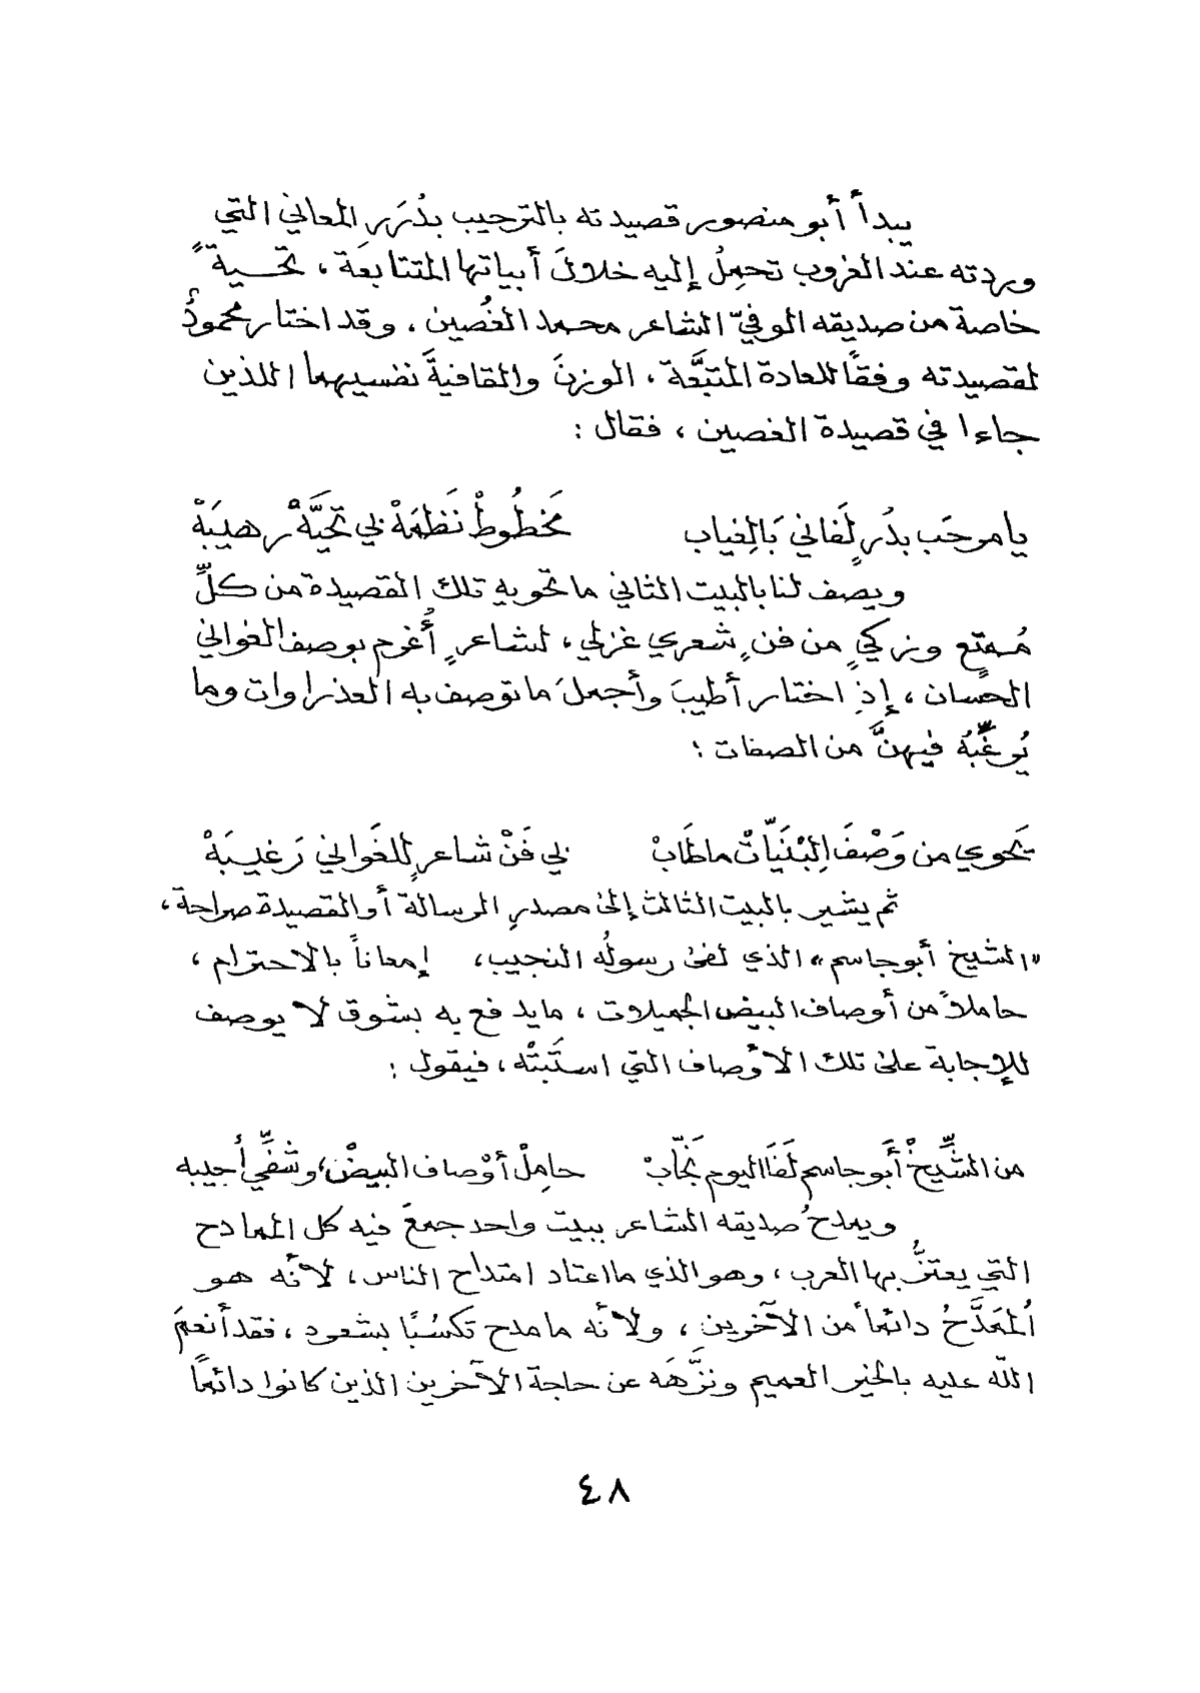 يبدأ أبو منصور قصيدته بالترحيب بدُرَرِ المعاني التي
وردته عند الغروب تحمِلُ إليه خلالَ أبياتها المتتابعَة ، تحـــيةً
خاصة من صديقه الوفيّ الشاعر محمد الغُصين ، وقد اختار محمودُ
لقصيدته وفقاً للعادة المتبَّعة ، الوزنَ والقافيةَ نفسيهما اللذين
جاءا في قصيدة الغصين ، فقال :
يا مرحَب بدُرٍ لَفاني بَالِغياب مَخطُوطْ نَظمَهْ لي تحَيَّهْ رهيبَهْ
ويصف لنا بالبيت الثاني ما تحويه تلك القصيدة من كلِّ
مُـمتِعٍ وزكيٍ من فنٍ شعري غزلي ، لشاعرٍ أُغرم بوصف الغواني
الحسان ، إذِ اختار أطيبَ وأجملَ ما توصف به العذراوات وما
يُرغِّبُهُ فيهنَّ من الصفات :
يَحوي من وَصْفَ اِلبْنَيّاتْ ما طَابْ لي فَنْ شاعرٍ للغَواني رَغيبَهْ
ثم يشير بالبيت الثالث إلى مصدرِ الرسالة أو القصيدة صراحة ،
« الشيخ أبو جاسم » الذي لفى رسولُه النجيب ، إمعاناً بالاحترام ،
حاملاً من أوصاف البيض الجميلات ، ما يدفع به بشوق لا يوصف
للإجابة على تلك الأوصاف التي استَبَتْه ، فيقول :
من الشِّيخْ أَبو جاسم لَفَا اليوم نَجّابْ حامِلْ أوْصاف البيضْ ، وشَفِّي أجيبه
ويمدحُ صديقه الشاعر ببيت واحد جمعَ فيه كل الممادح
التي يعتزُّ بها العرب ، وهو الذي ما اعتاد امتداح الناس ، لأنه هو
اُلممَدَّحُ دائماً من الآخرين ، ولأنه ما مدح تكسُبًا بشعرهِ ، فقد أنعمَ
اللّه عليه بالخير العميم ونزَّهَه عن حاجة الآخرين الذين كانوا دائماً
٤٨